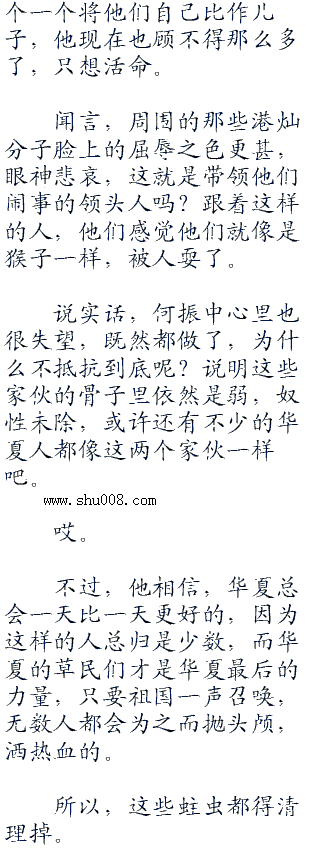 个一个将他们自己比作儿
子，他现在也顾不得那么多
了，只想活命。
闻言，周围的那些港灿
分子脸上的屈辱之色更甚，
眼神悲哀，这就是带领他们
闹事的领头人吗？跟着这样
的人，他们感觉他们就像是
猴子一样，被人耍了。
说实话，何振中心里也
很失望，既然都做了，为什
么不抵抗到底呢？说明这些
家伙的骨子里依然是弱，奴
性未除，或许还有不少的华
夏人都像这两个家伙一样
吧。
www.shu008.com
哎。
不过，他相信，华夏总
会一天比一天更好的，因为
这样的人总归是少数，而华
夏的草民们才是华夏最后的
力量，只要祖国一声召唤，
无数人都会为之而抛头颅，
洒热血的。
所以，这些蛀虫都得清
理掉。